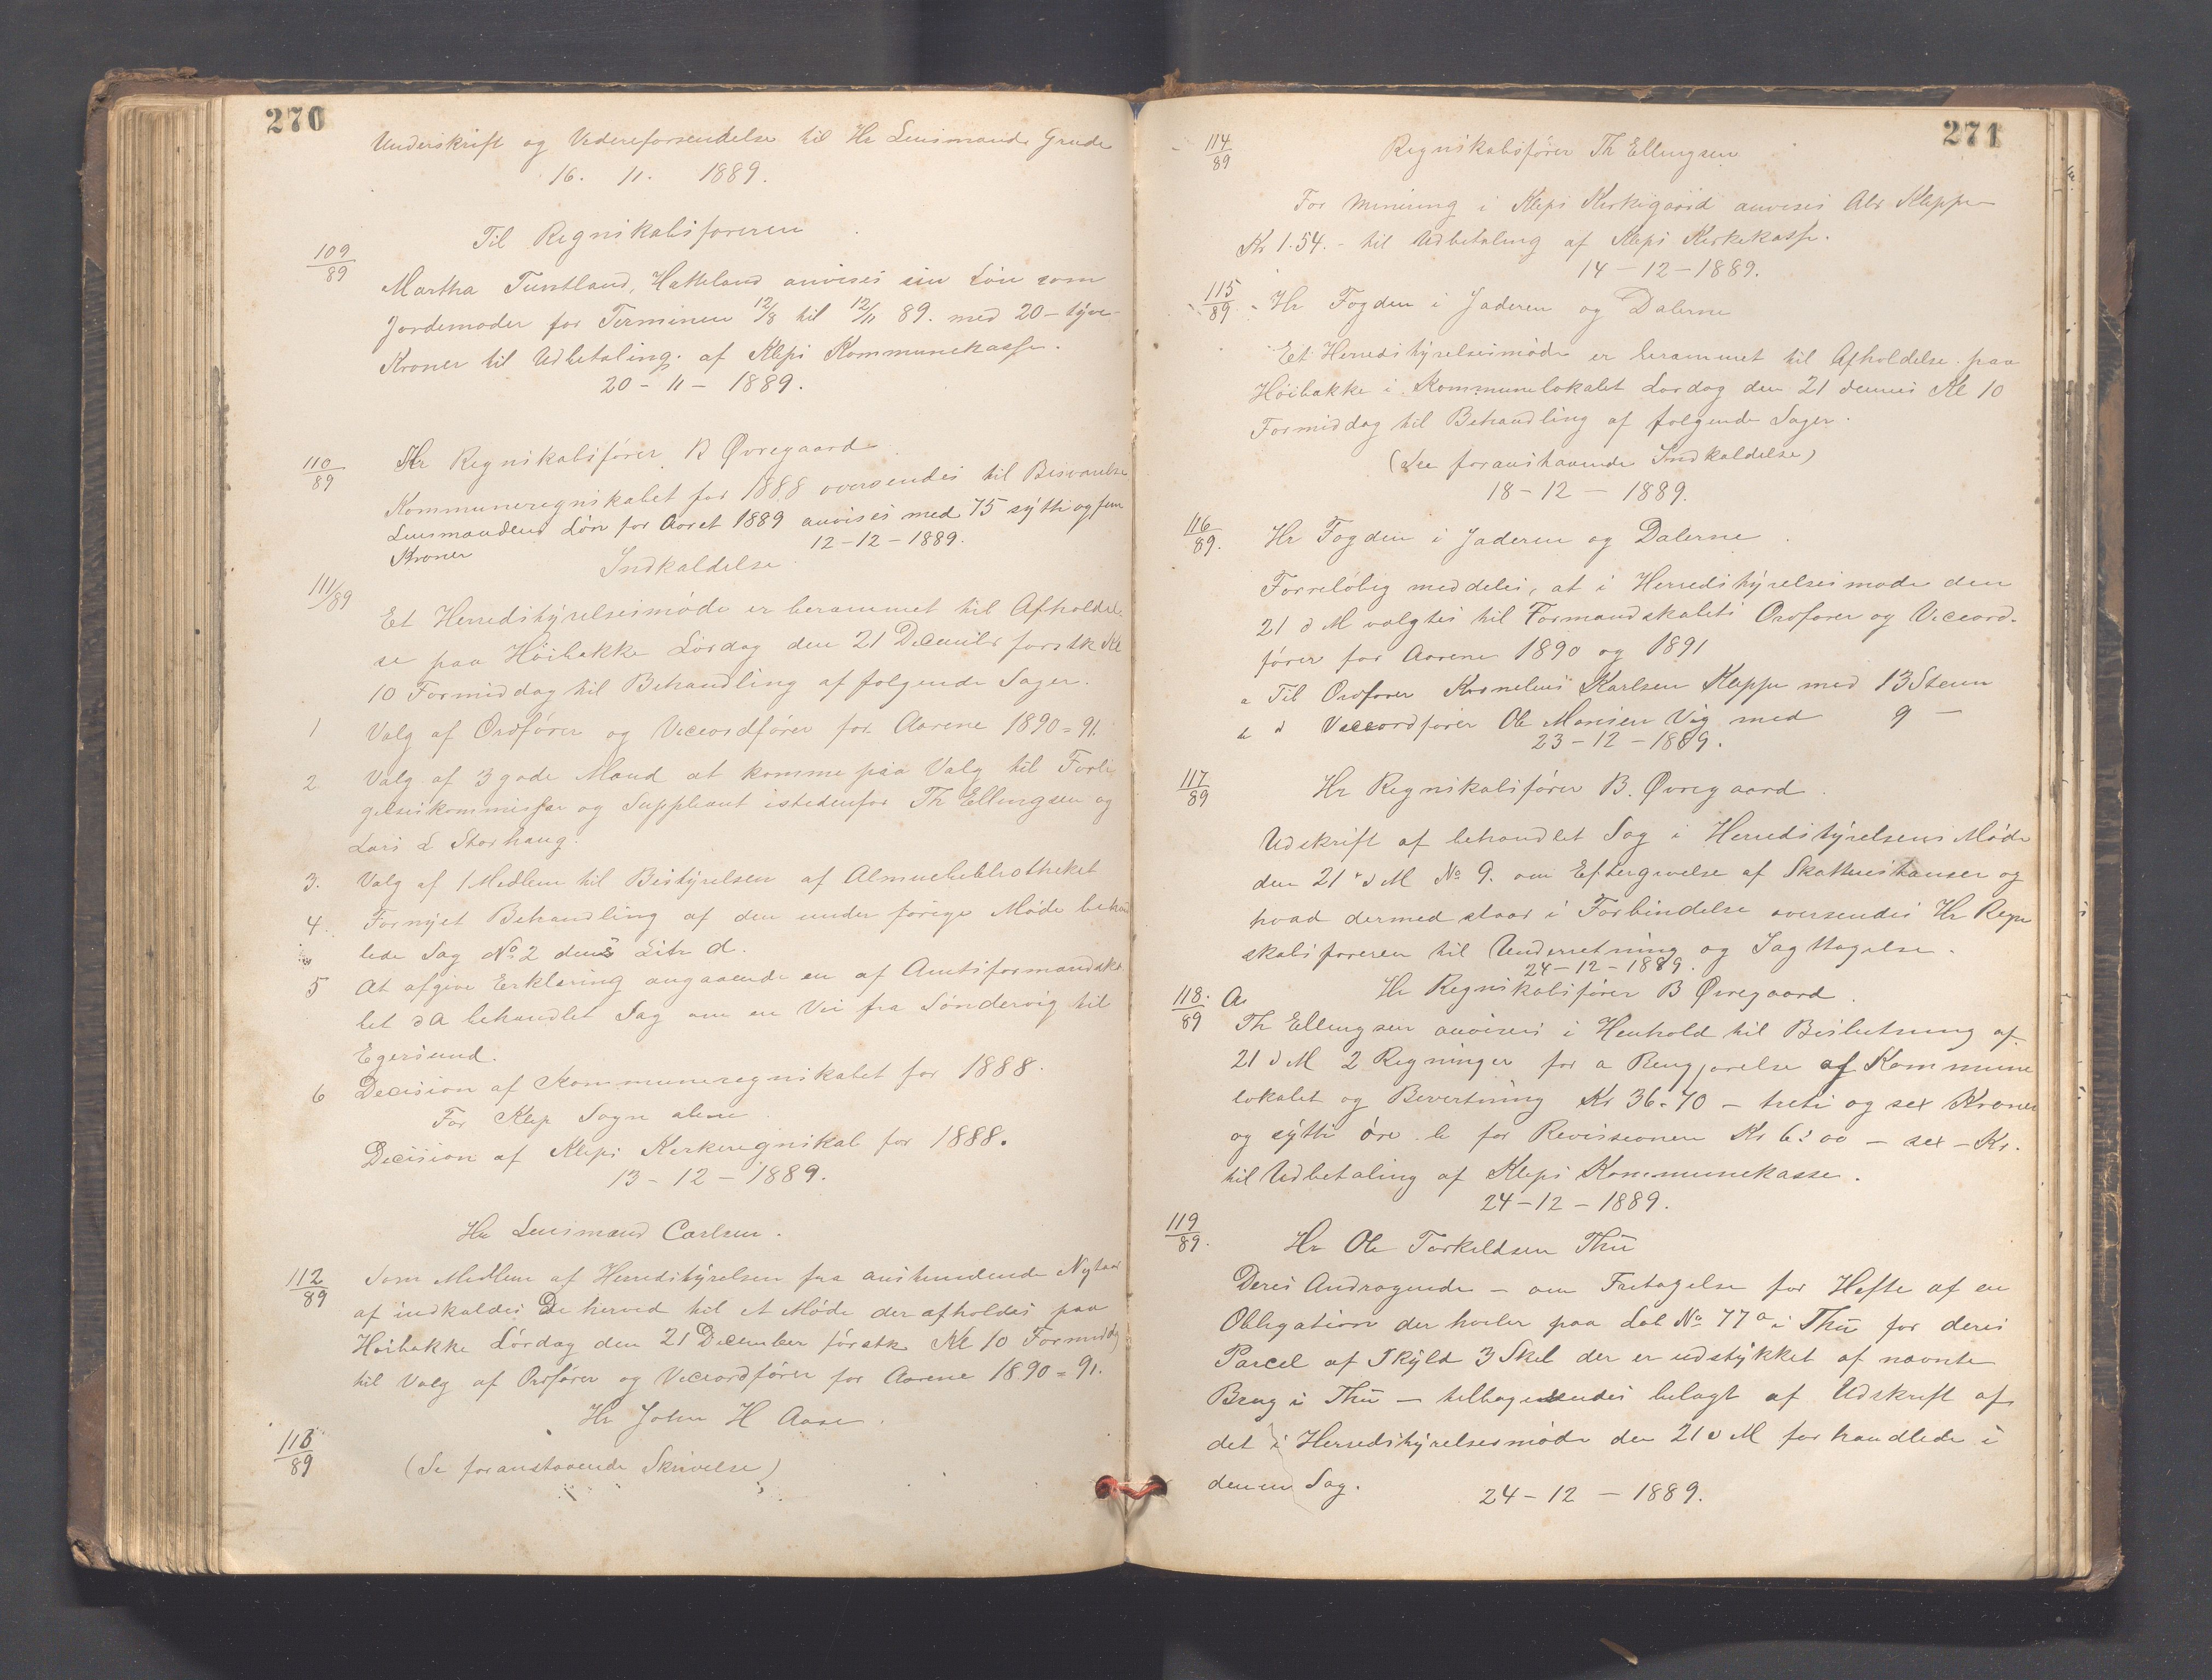 270
Underskrift og Videreforsendelse til Hr Lensmand Grude
16. 11. 1889.
109/89 Til Regnskabsføreren
Martha Tuntland, Hatteland anvises sin Løn som
Jordemoder for Terminen 12/8 til 12/11 89. med 20 - tyve
Kroner til Udbetaling af Kleps Kommunekasse.
20 - 11 - 1889.
110/89 Hr Regnskabsfører B Øvregaard
Kommuneregnskabet for 1888 oversendes til Besvarelse
Lensmandens Løn for Aaret 1889 anvises med 75 sytti og fem
Kroner 12 - 12 - 1889.
111/89 Indkaldelse
Et Herredstyrelsesmøde er berammet til Afholdel-
se paa Höibakke Lördag den 21 December førstk Kl
10 Formiddag til Behandling af følgende Sager.
1 Valg af Ordfører og Viceordfører for Aarene 1890=91.
2 Valg af 3 gode Mænd at komme paa Valg til Forli
gelseskommissær og Suppleant istedenfor Th Ellingsen og
Lars L Storhaug.
3. Valg af 1 Medlem til Bestyrelsen af Almuebibliotheket
4 Fornyet Behandling af den under forrige Møde behand
lede Sag No 2 dens Litr d.
5 At afgive Erklæring angaaende en af Amtsformandska
bet d A behandlet Sag om en Vei fra Söndervig til
Egersund.
6 Decision af Kommuneregnskabet for 1888.
For Klep Sogn alene
Decision af Kleps Kirkeregnskab for 1888.
13 - 12 - 1889.
Hr Lensmand Carlsen.
112/89 Som Medlem af Herredstyrelsen fra anstundende Nytaar
af indkaldes De herved til et Møde der afholdes paa
Höibakke Lördag den 21 December førstk Kl 10 Formiddg
til Valg af Ordfører og Viceordfører for Aarene 1890=91.
Hr John H Aase.
113/89 (Se foranstaaende Skrivelse)
271
114/89 Regnskabsfører Th Ellingsen
For Minering i Kleps Kirkegaard anvises Abr Kleppe
Kr 1.54. - til Udbetaling af Kleps Kirkekasse.
14 - 12 - 1889.
115/89 Hr Fogden i Jæderen og Dalerne
Et Herredstyrelsesmøde er berammet til Afholdelse paa
Höibakke i Kommunelokalet Lørdag den 21 dennes Kl 10
Formiddag til Behandling af følgende Sager.
(See foranstaaende Indkaldelse)
18 - 12 - 1889.
116/89. Hr Fogden i Jæderen og Dalerne
Foreløbig meddeles, at i Herredstyrelsesmøde den
21 d M valgtes til Formandskabets Ordfører og Viceord-
fører for Aarene 1890 og 1891
a Til Ordfører Kornelius Karlsen Kleppe med 13 Stem
b d Viceordfører Ole Monsen Vig med 9 —
23 - 12 - 1889.
117/89 Hr Regnskabsfører B. Øvregaard
Udskrift af behandlet Sag i Herredstyrelsens Møde
den 21 d M No 9. om Eftergivelse af Skatterestanser og
hvad dermed staar i Forbindelse oversendes Hr Regn
skabsføreren til Underretning og Iagttagelse.
24 - 12 - 1889.
118./89 A Hr Regnskabsfører B Øvregaard
Th Ellingsen anvises i Henhold til Beslutning af
21 d M 2 Regninger for a Rengjørelse af Kommune
lokalet og Bevertning Kr 36.70 — treti og sex Kroner
og sytti øre b for Revisionen Kr 6:00 — sex — Kr.
til Udbetaling af Kleps Kommunekasse.
24 - 12 - 1889.
119/89. Hr Ole Torkeldsen Thū
Deres Andragende — om Fritagelse for Hefte af en
Obligation der hviler paa Løb No 77 a i Thū for deres
Parcel af Skyld 3 Skil der er udstykket af nævnte
Brug i Thū — tilbagesendes bilagt af Udskrift af
det i Herredstyrelsesmøde den 21 d M forhandlede i
denne Sag.
24 - 12 — 1889.